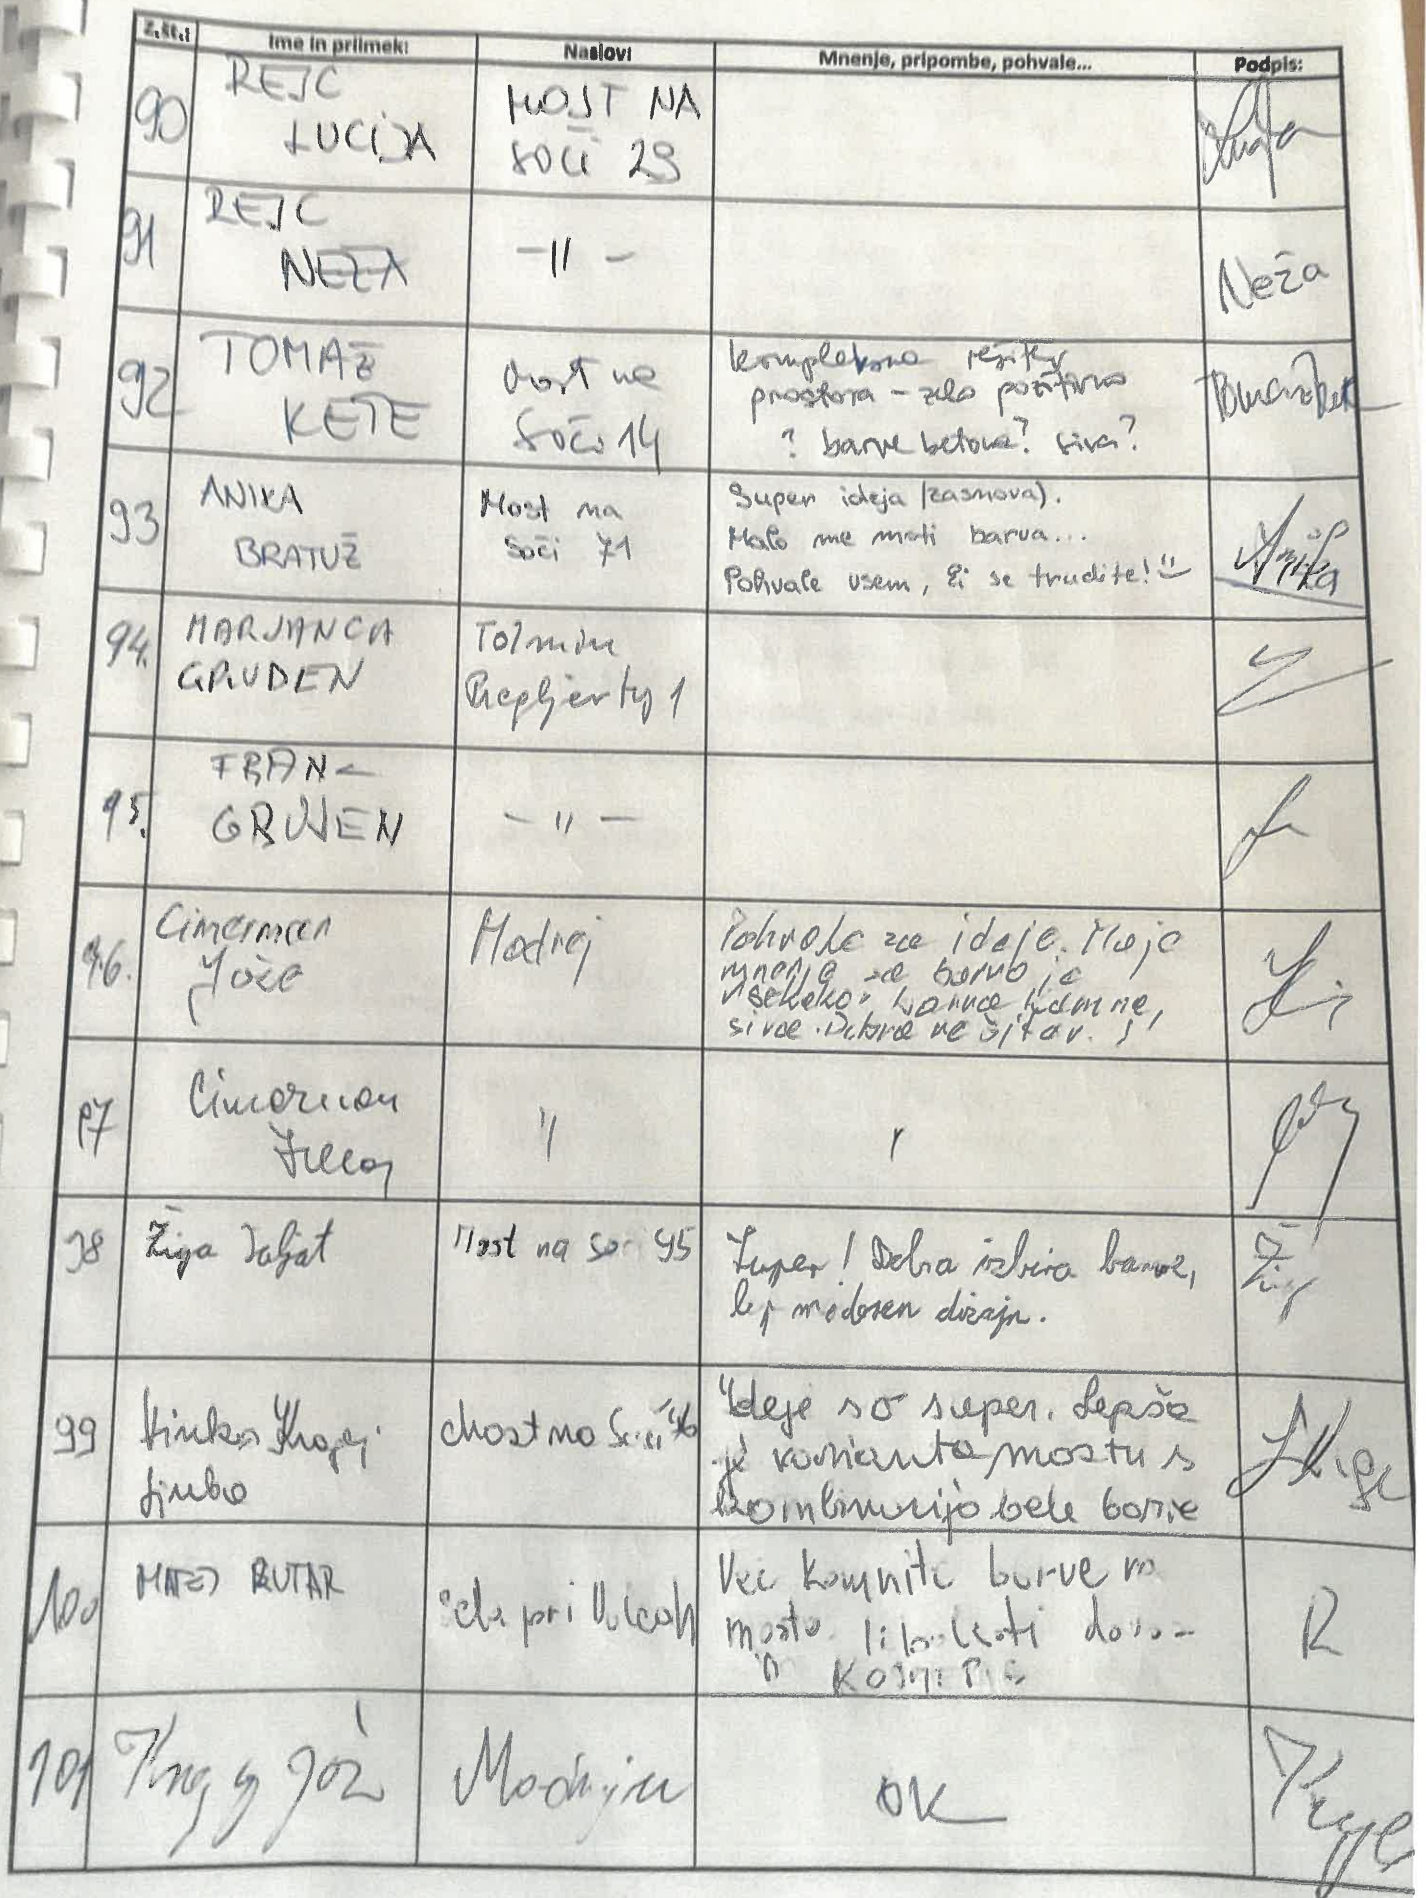 Z.št.: Ime in priimek: Naslov: Mnenje, pripombe, pohvale... Podpis:
90 REJC LUCIJA MOST NA SOČI 29
91 REJC NEŽA -"- Neža
92 TOMAŽ KETE Most na Soči 14
kompleksna rešitev
prostora - zelo pozitivno
? barve betona? siva?
93 ANIKA BRATUŽ Most na Soči 71 Anika
Super ideja (zasnova).
Malo me moti barva...
Pohvale vsem, ki se trudite! :)
94. MARJANCA GRUDEN Tolmin 1
95. FRANC GRUDEN -"-
96. Cimerman Jože Modrej
Pohvale za ideje. Moje
mnenje za barvo je
vsekakor barva kamna,
siva. Dobra rešitev.
97 Cimerman "
98 Žiga Most na Soči 45 Žiga
Super! Dobra izbira barve,
lep moderen dizajn.
99 Kragelj Most na Soči
Ideje so super. Lepša
je varianta mostu s
kombinacijo bele barve
100 MATEJ RUTAR pri Volčah R
Več kamnite barve na
mostu
101 OK